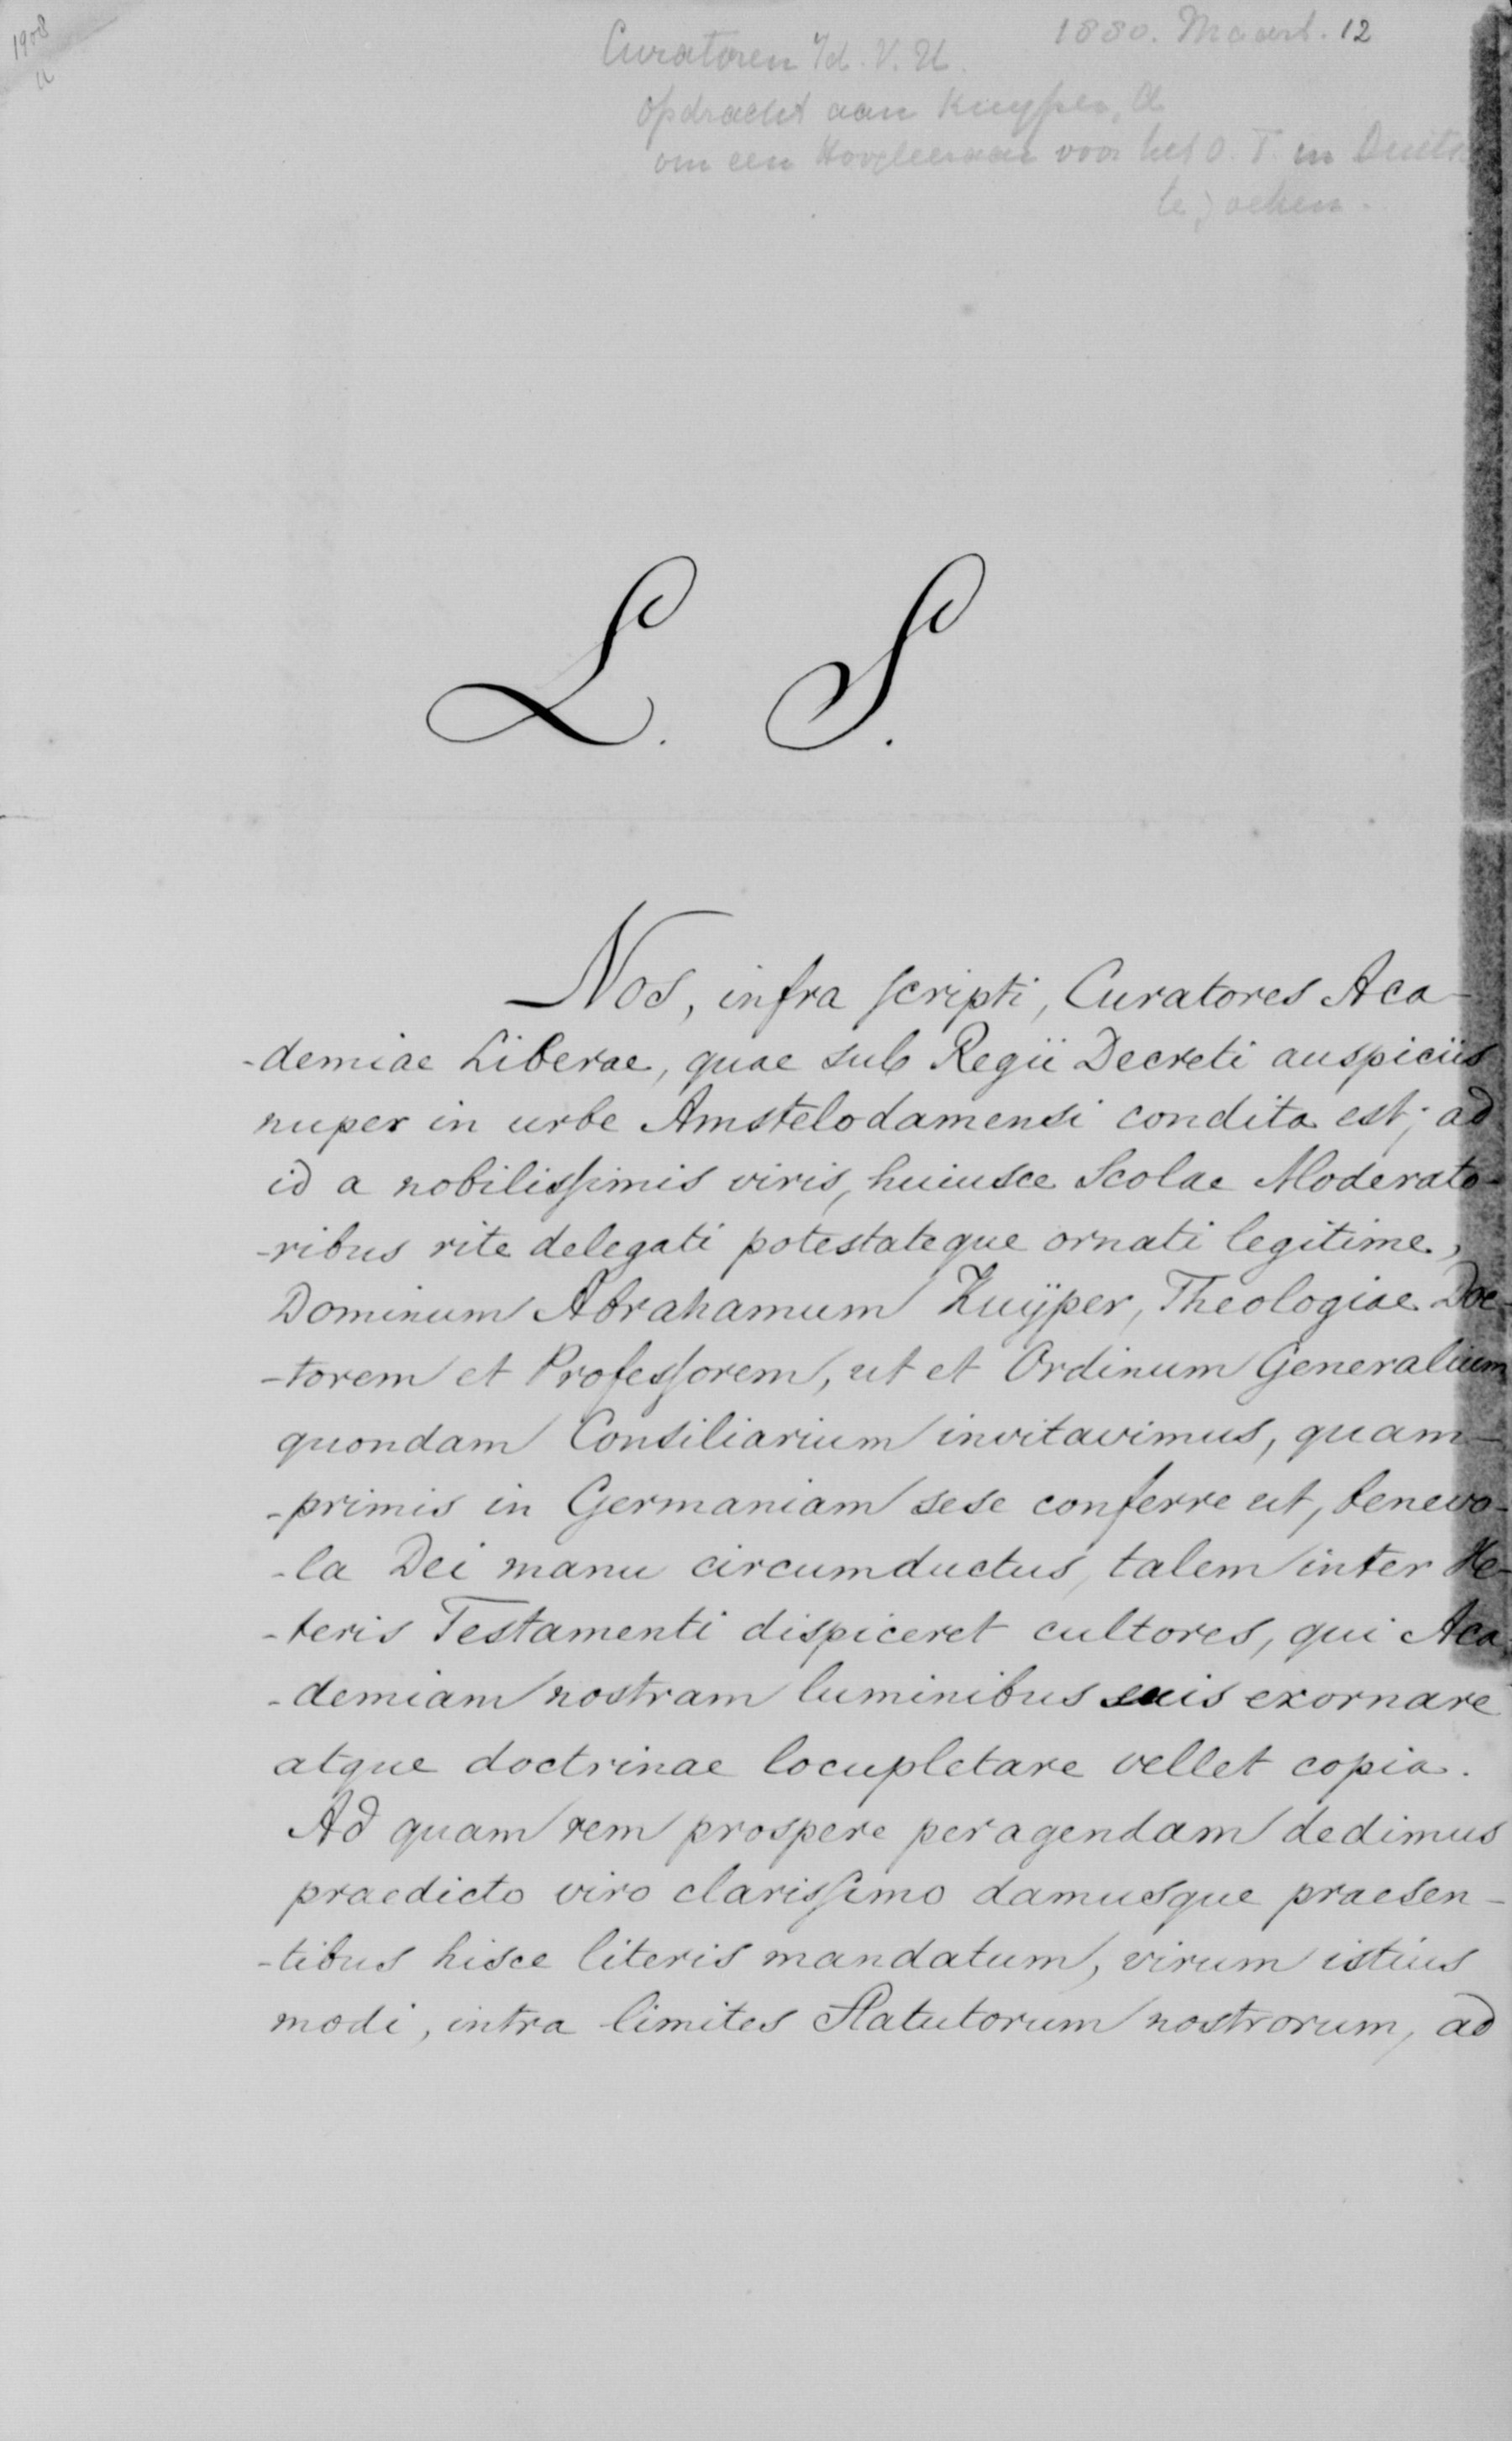 1908
1880. Maart. 12
Curatoren v/d. V. U.
opdracht aan Kuyper, A
om een Hoogleeraar voor het O. T. in Duits
te zoeken.
L. S.
Nos, infra scripti, Curatores Aca-
-demiae Liberae, quae sub Regii Decreti auspiciis
nuper in urbe Amstelodamensi condita est; ad
id a nobilissimis viris, huiusce Scolae Moderato-
-ribus rite delegati potestateque ornati legitime,
Dominum Abrahamum Kuÿper, Theologiae Doc-
-torem et Professorem, ut et Ordinum Generalium
quondam Consiliarium invitavimus, quam-
-primis in Germaniam sese conferre ut, benevo-
-la Dei manu circumductus, talem inter Ve-
-teris Testamenti dispiceret cultores, qui Aca
-demiam nostram luminibus suis exornare
atque doctrinae locupletare vellet copia.
Ad quam rem prospere peragendam dedimus
praedicto viro clarissimo damusque praesen-
-tibus hisce literis mandatum, virum istius
modi, intra limites Statutorum nostrorum, ad